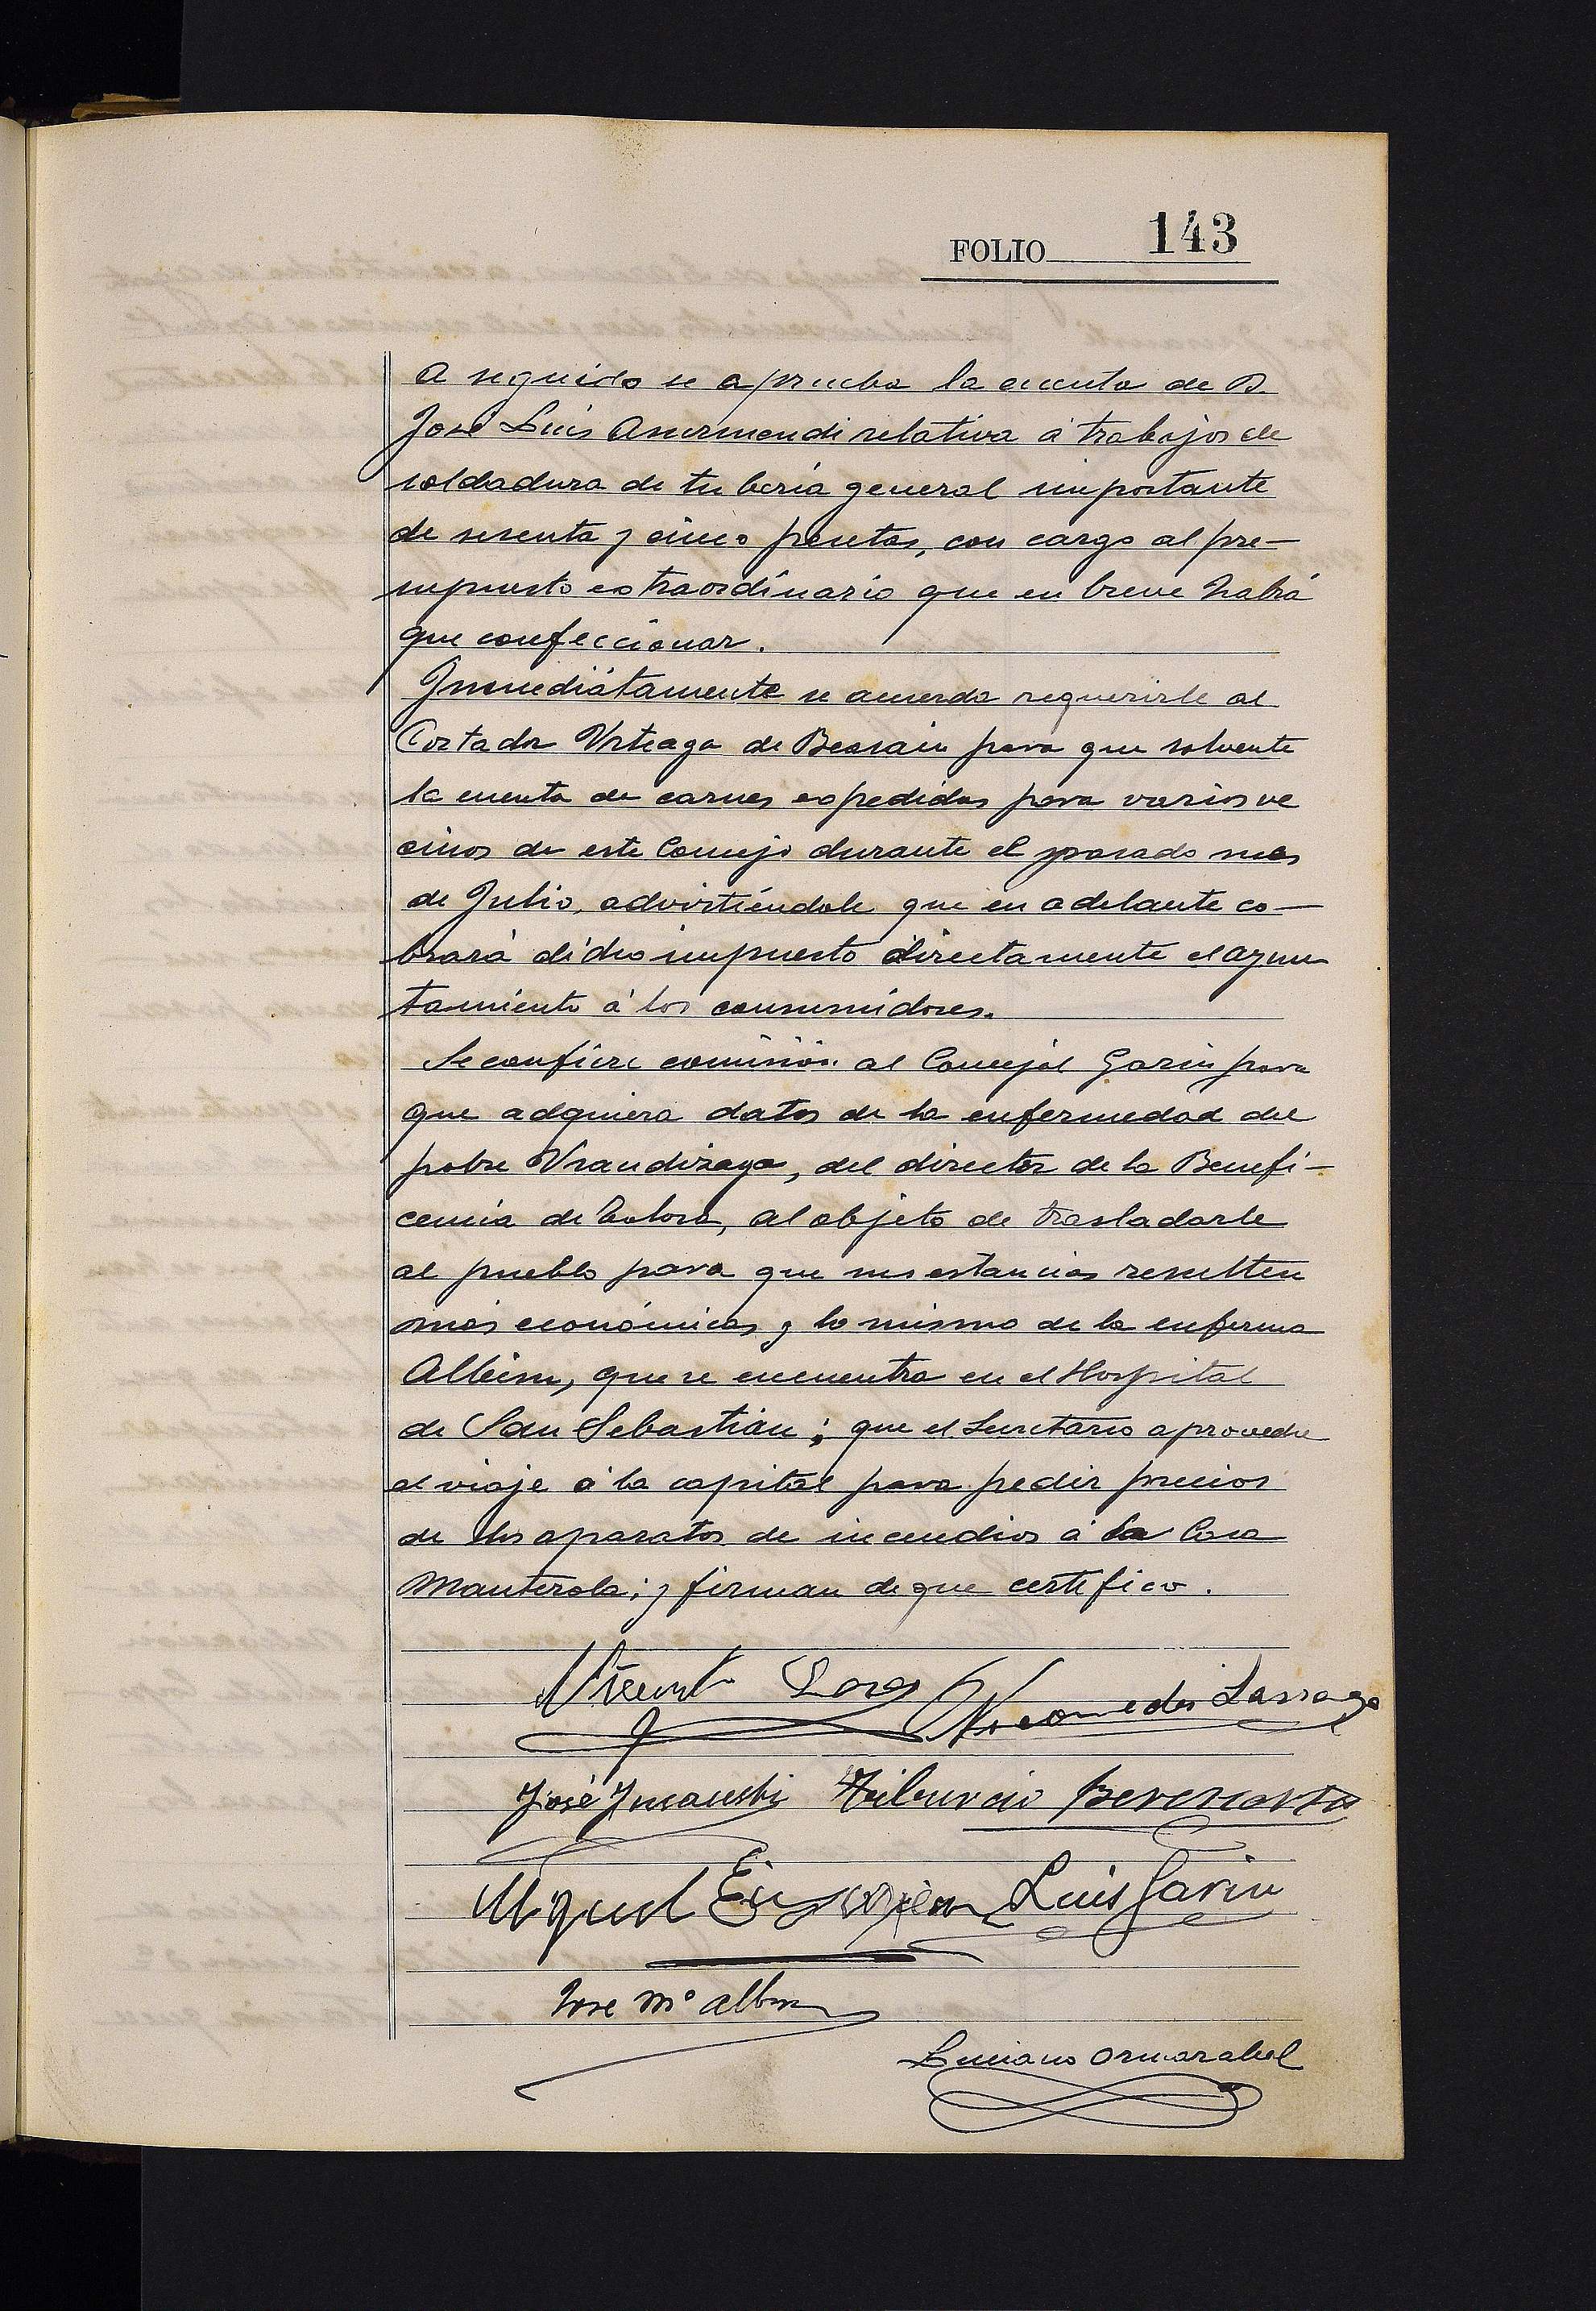 FOLIO 143
A seguido se aprueba la cuenta de D.
José Luis Asurmendi relativa á trabajos de
soldadura de tubería general importante
de sesenta y cinco pesetas, con cargo al pre-
supuesto extraordinario que en breve habrá
que confeccionar.
Inmediátamente se acuerda requerirle al
Cortador Urteaga de Beasain para que solvente
la cuenta de carnes expedidas para varios ve
cinos de este Concejo durante el pasado mes
de Julio, advirtiéndole que en adelante co-
brará dicho impuesto directamente el ayun
tamiento á los consumidores.
Se confiere comisión al Concejal Garin para
que adquiera datos de la enfermedad del
pobre Urandizaga, del director de la Benefi-
cencia de Tolosa, al objeto de trasladarle
al pueblo para que sus estancias resulten
más económicas y lo mismo de la enferma
Albisu, que se encuentra en el Hospital
de San Sebastián; que el Secretario aproveche
el viaje á la capital para pedir precios
de los aparatos de incendios á la Casa
Manterola; y firman de que certifico.
Vicente Nicomedes Larraga
José Tiburcio
Miguel Luis Garin
Jose Mª Albisu
Luciano Ormazabal